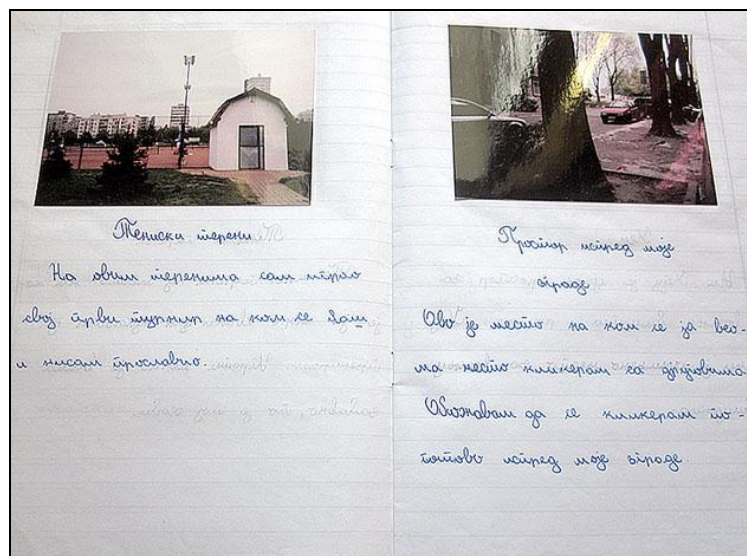 Тениски терени
На овим теренима сам играо
свој први турнир на ком се баш
и нисам прославио.
Простор испред моје
зграде
Ово је место на ком се ја вео-
ма често кликерам са друговима
Обожавам да се кликерам по-
готово испред моје зграде.